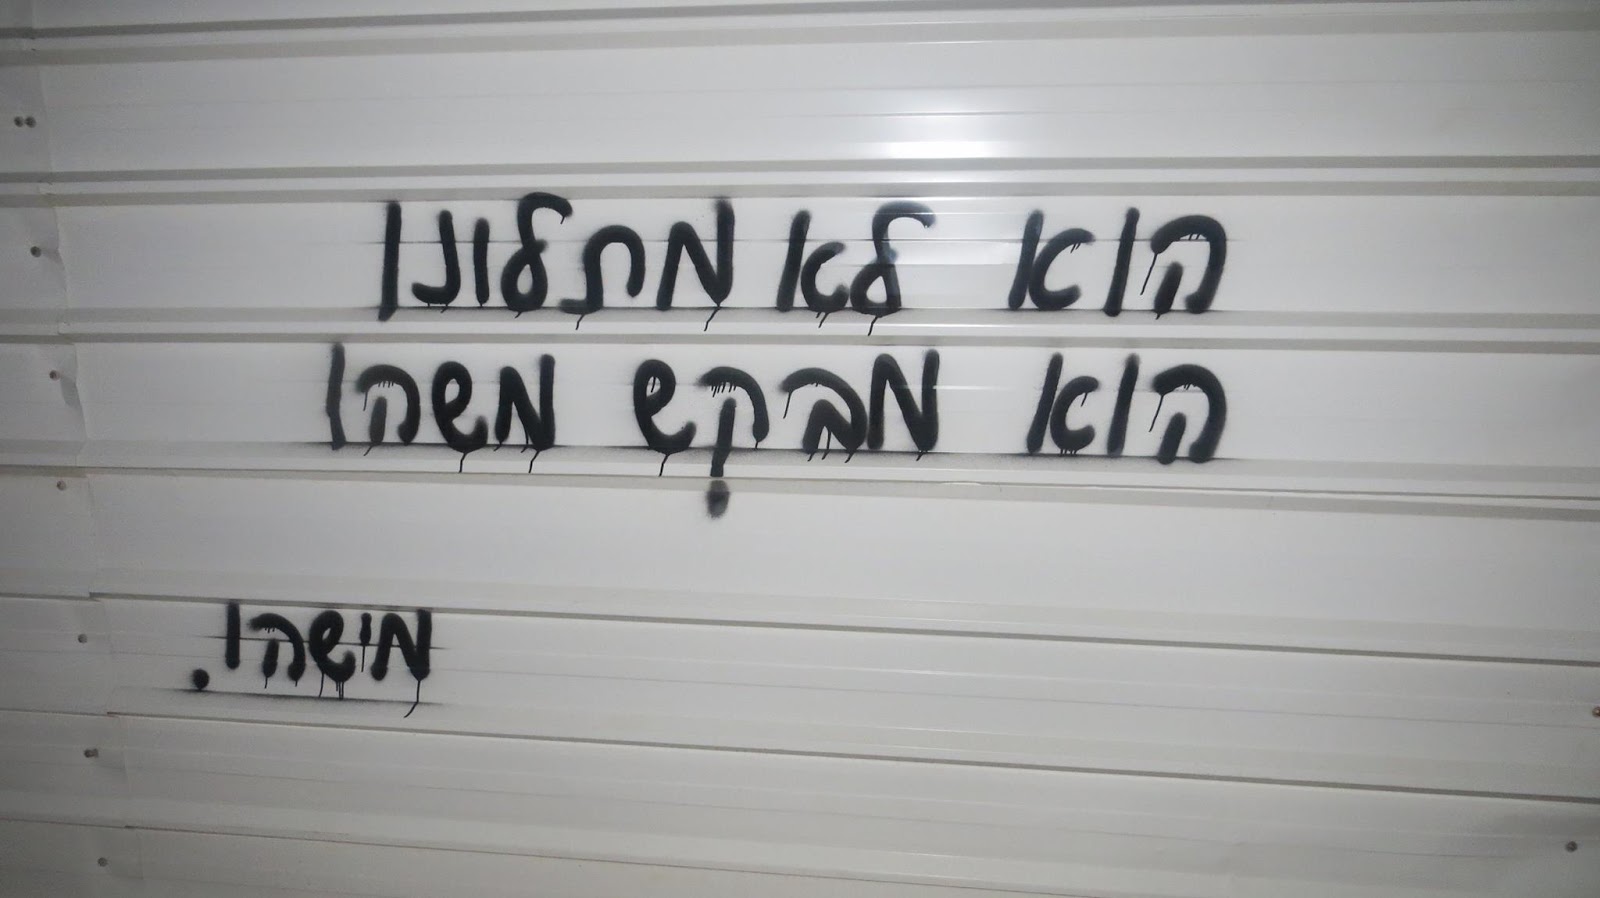 הוא לא מתלונן
הוא מבקש משהו
מישהו.